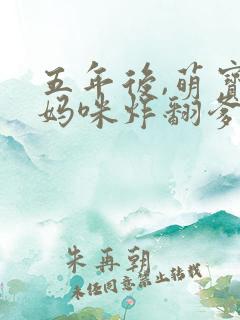 五年後,萌寶
妈咪炸翻爹
朱再朝
未经同意禁止转载